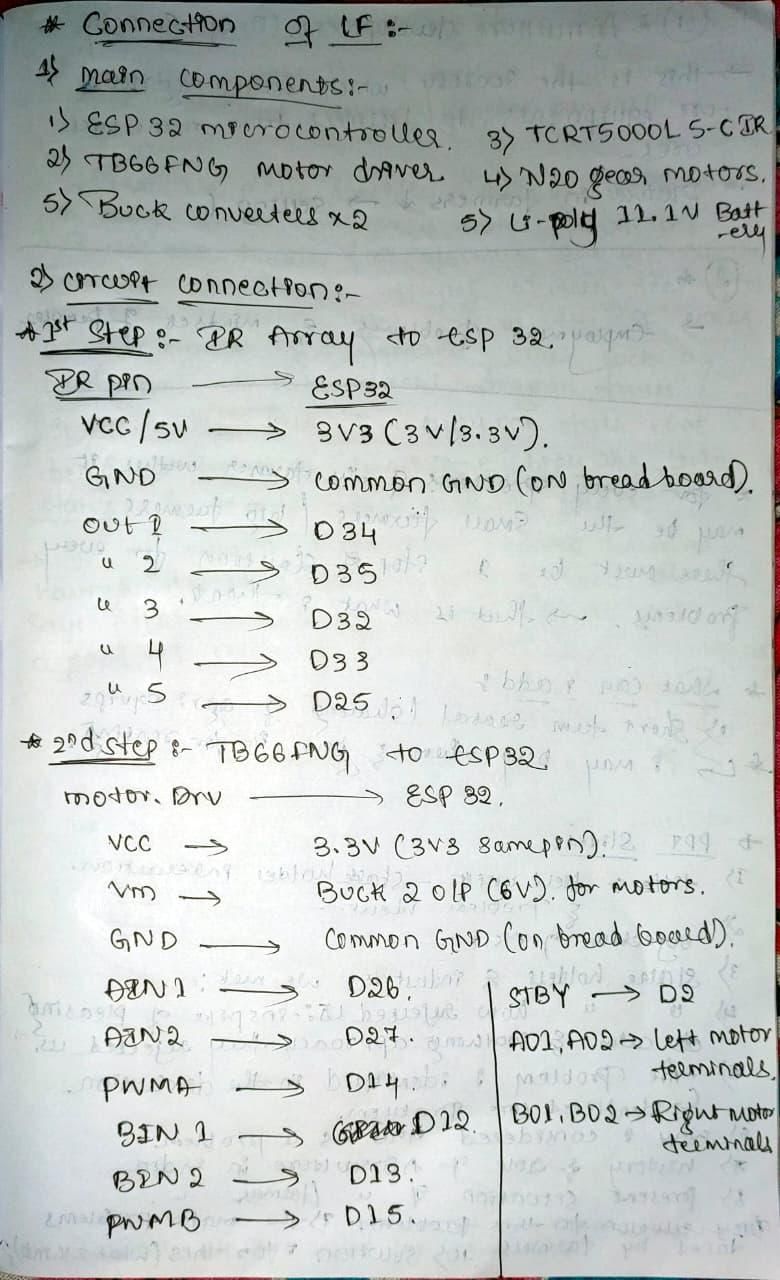 * Connection of LF :-
1) Main components:-
1) ESP 32 microcontroller. 3) TCRT5000L 5-C IR
2) TB66FNG motor driver 4) N20 gear motors.
5) Buck converters x2 5) Li-poly 11.1V Batt
-ery
2) circuit connection:-
* 1st Step :- IR Array to esp 32.
IR pin → ESP32
VCC/5V → 3V3 (3V/3.3V).
GND → common GND (ON bread board).
out 1 → D34
" 2 → D35
" 3 → D32
" 4 → D33
" 5 → D25
* 2nd step :- TB66FNG to ESP32
motor. Drv → ESP 32.
VCC → 3.3V (3V3 same pin).
Vm → Buck 2 O/P (6V). for motors.
GND → Common GND (on bread board).
AIN1 → D26.
AIN2 → D27.
PWMA → D14.
BIN 1 → D12.
BIN 2 → D13.
PWMB → D15.
STBY → D2
A01, A02 → left motor
terminals.
B01, B02 → Right motor
terminals